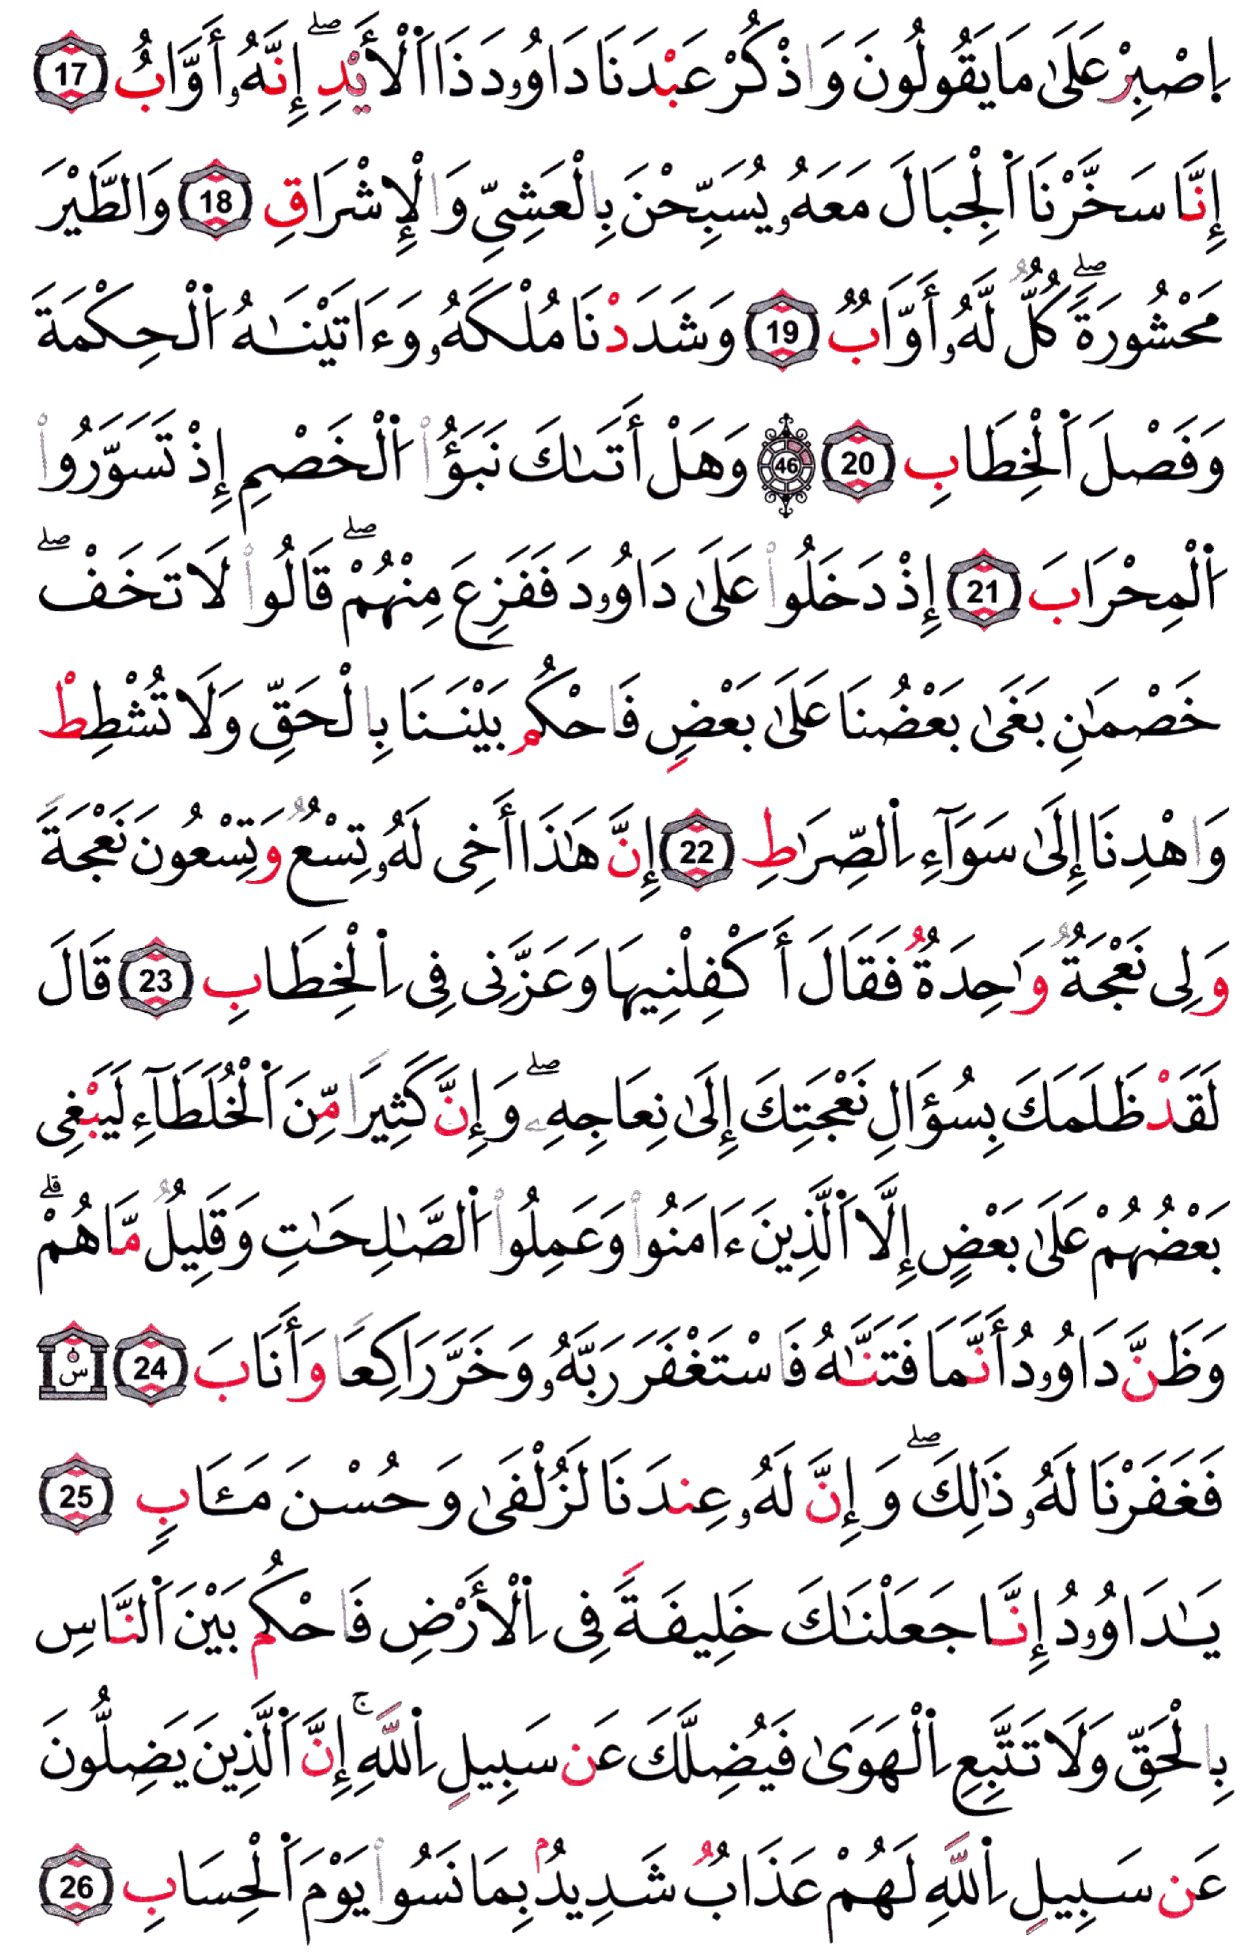 اِ۪صْبِرْ عَلَىٰ مَا يَقُولُونَ وَاذْكُرْ عَبْدَنَا دَاوُۥدَ ذَا اَ۬لْأَيْدِۖ إِنَّهُۥ أَوَّابُ 17
إِنَّا سَخَّرْنَا اَ۬لْجِبَالَ مَعَهُۥ يُسَبِّحْنَ بِالْعَشِيِّ وَالْإِشْرَاقِ 18 وَالطَّيْرَ
مَحْشُورَةًۖ كُلٌّ لَّهُۥ أَوَّابٌ 19 وَشَدَدْنَا مُلْكَهُۥ وَءَاتَيْنَـٰهُ اُ۬لْحِكْمَةَ
وَفَصْلَ اَ۬لْخِطَابِ 20 46 وَهَلْ أَتَىٰكَ نَبَؤُاْ اُ۬لْخَصْمِ إِذْ تَسَوَّرُواْ
اُ۬لْمِحْرَابَ 21 إِذْ دَخَلُواْ عَلَىٰ دَاوُۥدَ فَفَزِعَ مِنْهُمْۖ قَالُواْ لَا تَخَفْۖ
خَصْمَـٰنِ بَغَىٰ بَعْضُنَا عَلَىٰ بَعْضٍ فَاحْكُم بَيْنَنَا بِالْحَقِّ وَلَا تُشْطِطْ
وَاهْدِنَا إِلَىٰ سَوَآءِ اِ۬لصِّرَٰطِ 22 إِنَّ هَـٰذَا أَخِى لَهُۥ تِسْعٌ وَتِسْعُونَ نَعْجَةً
وَلِى نَعْجَةٌ وَٰحِدَةٌ فَقَالَ أَكْفِلْنِيهَا وَعَزَّنِى فِى اِ۬لْخِطَابِ 23 قَالَ
لَقَدْ ظَلَمَكَ بِسُؤَالِ نَعْجَتِكَ إِلَىٰ نِعَاجِهِۦۖ وَإِنَّ كَثِيرًا مِّنَ اَ۬لْخُلَطَآءِ لَيَبْغِى
بَعْضُهُمْ عَلَىٰ بَعْضٍ إِلَّا اَ۬لَّذِينَ ءَامَنُواْ وَعَمِلُواْ اُ۬لصَّـٰلِحَـٰتِ وَقَلِيلٌ مَّا هُمْۗ
وَظَنَّ دَاوُۥدُ أَنَّمَا فَتَنَّـٰهُ فَاسْتَغْفَرَ رَبَّهُۥ وَخَرَّ رَاكِعًا وَأَنَابَ 24 س
فَغَفَرْنَا لَهُۥ ذَٰلِكَۖ وَإِنَّ لَهُۥ عِندَنَا لَزُلْفَىٰ وَحُسْنَ مَـَٔابٍ 25
يَـٰدَاوُۥدُ إِنَّا جَعَلْنَـٰكَ خَلِيفَةً فِى اِ۬لْأَرْضِ فَاحْكُم بَيْنَ اَ۬لنَّاسِ
بِالْحَقِّ وَلَا تَتَّبِعِ اِ۬لْهَوَىٰ فَيُضِلَّكَ عَن سَبِيلِ اِ۬للَّهِۚ إِنَّ اَ۬لَّذِينَ يَضِلُّونَ
عَن سَبِيلِ اِ۬للَّهِ لَهُمْ عَذَابٌ شَدِيدٌۢ بِمَا نَسُواْ يَوْمَ اَ۬لْحِسَابِ 26